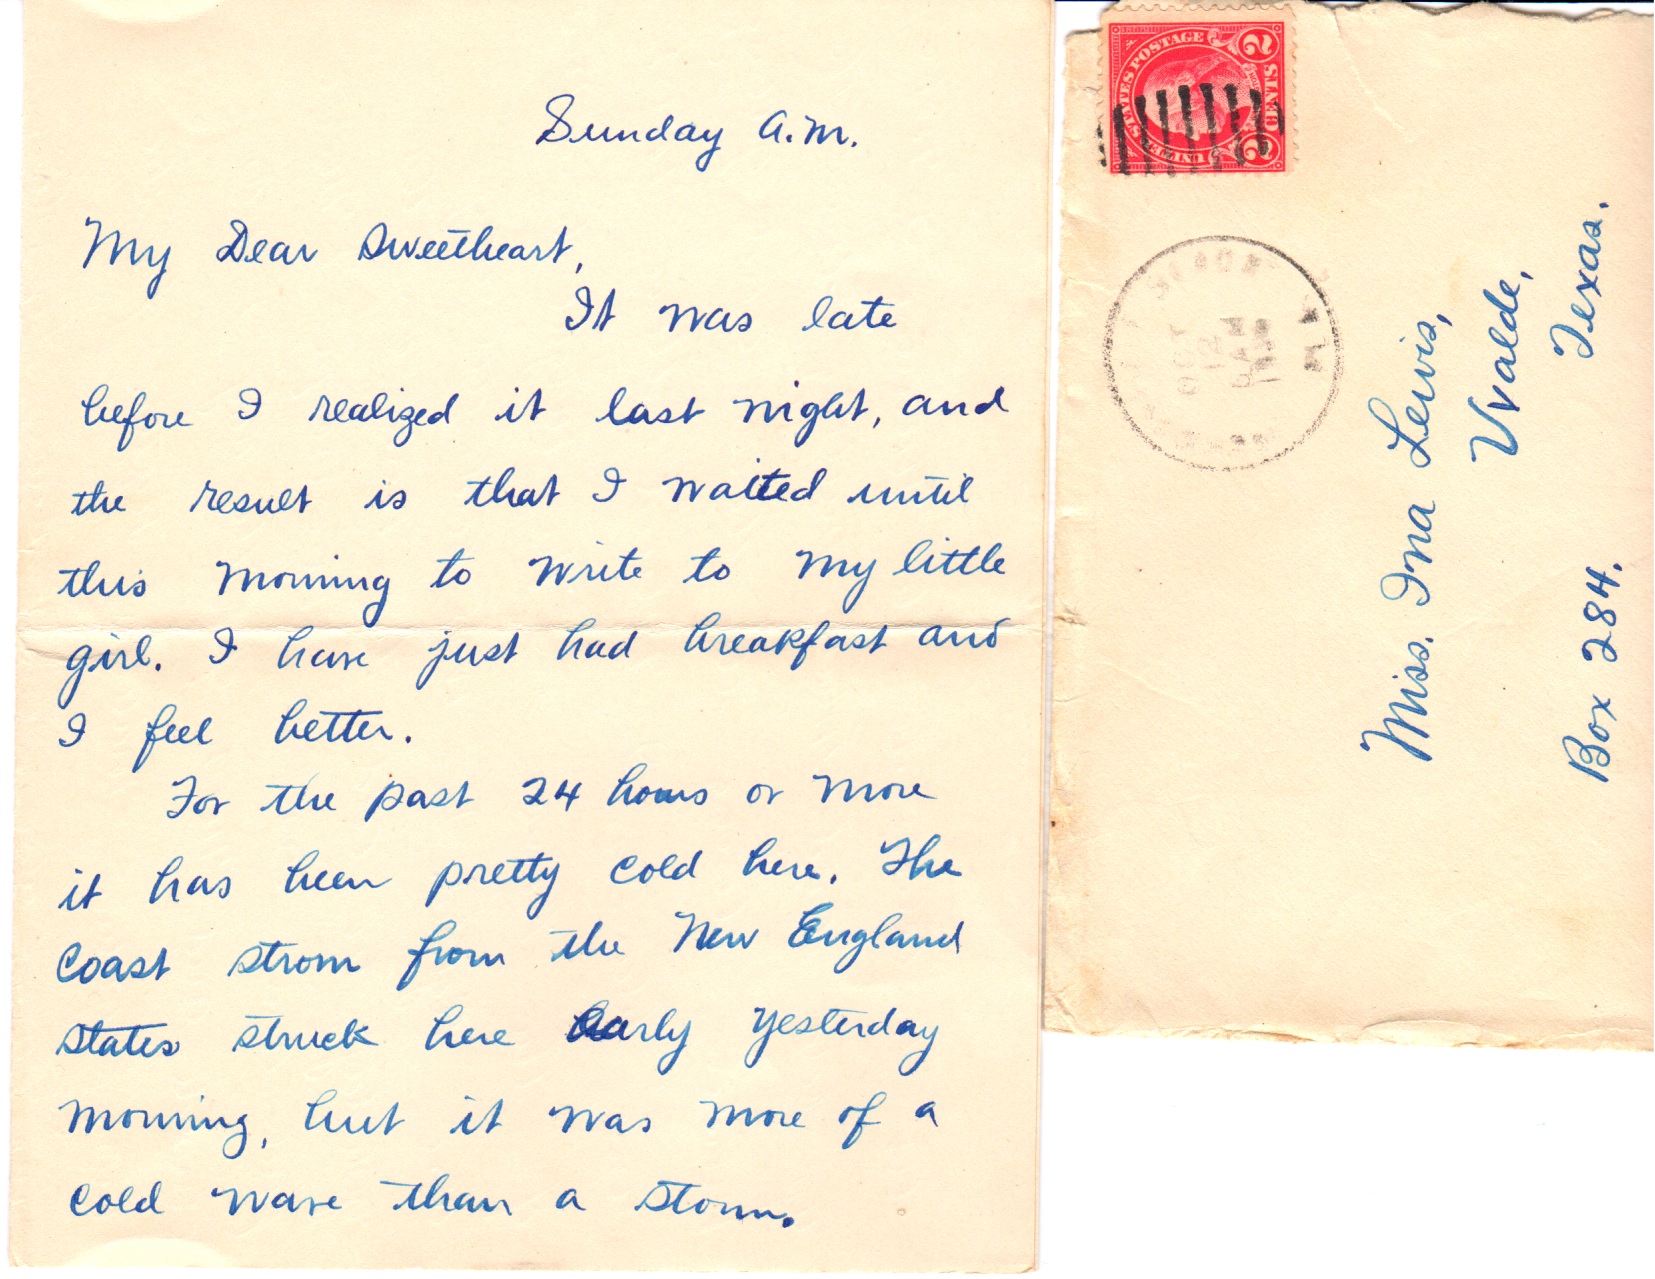 Sunday a.m.
My Dear Sweetheart,
It was late
before I realized it last night, and
the result is that I waited until
this morning to write to my little
girl. I have just had breakfast and
I feel better.
For the past 24 hours or more
it has been pretty cold here. The
coast strom from the New England
states struck here early yesterday
morning, but it was more of a
cold wave than a storm.
UNITED STATES POSTAGE
2 CENTS 2
OCT
Miss. Ina Lewis,
Uvalde,
Texas.
Box 284.